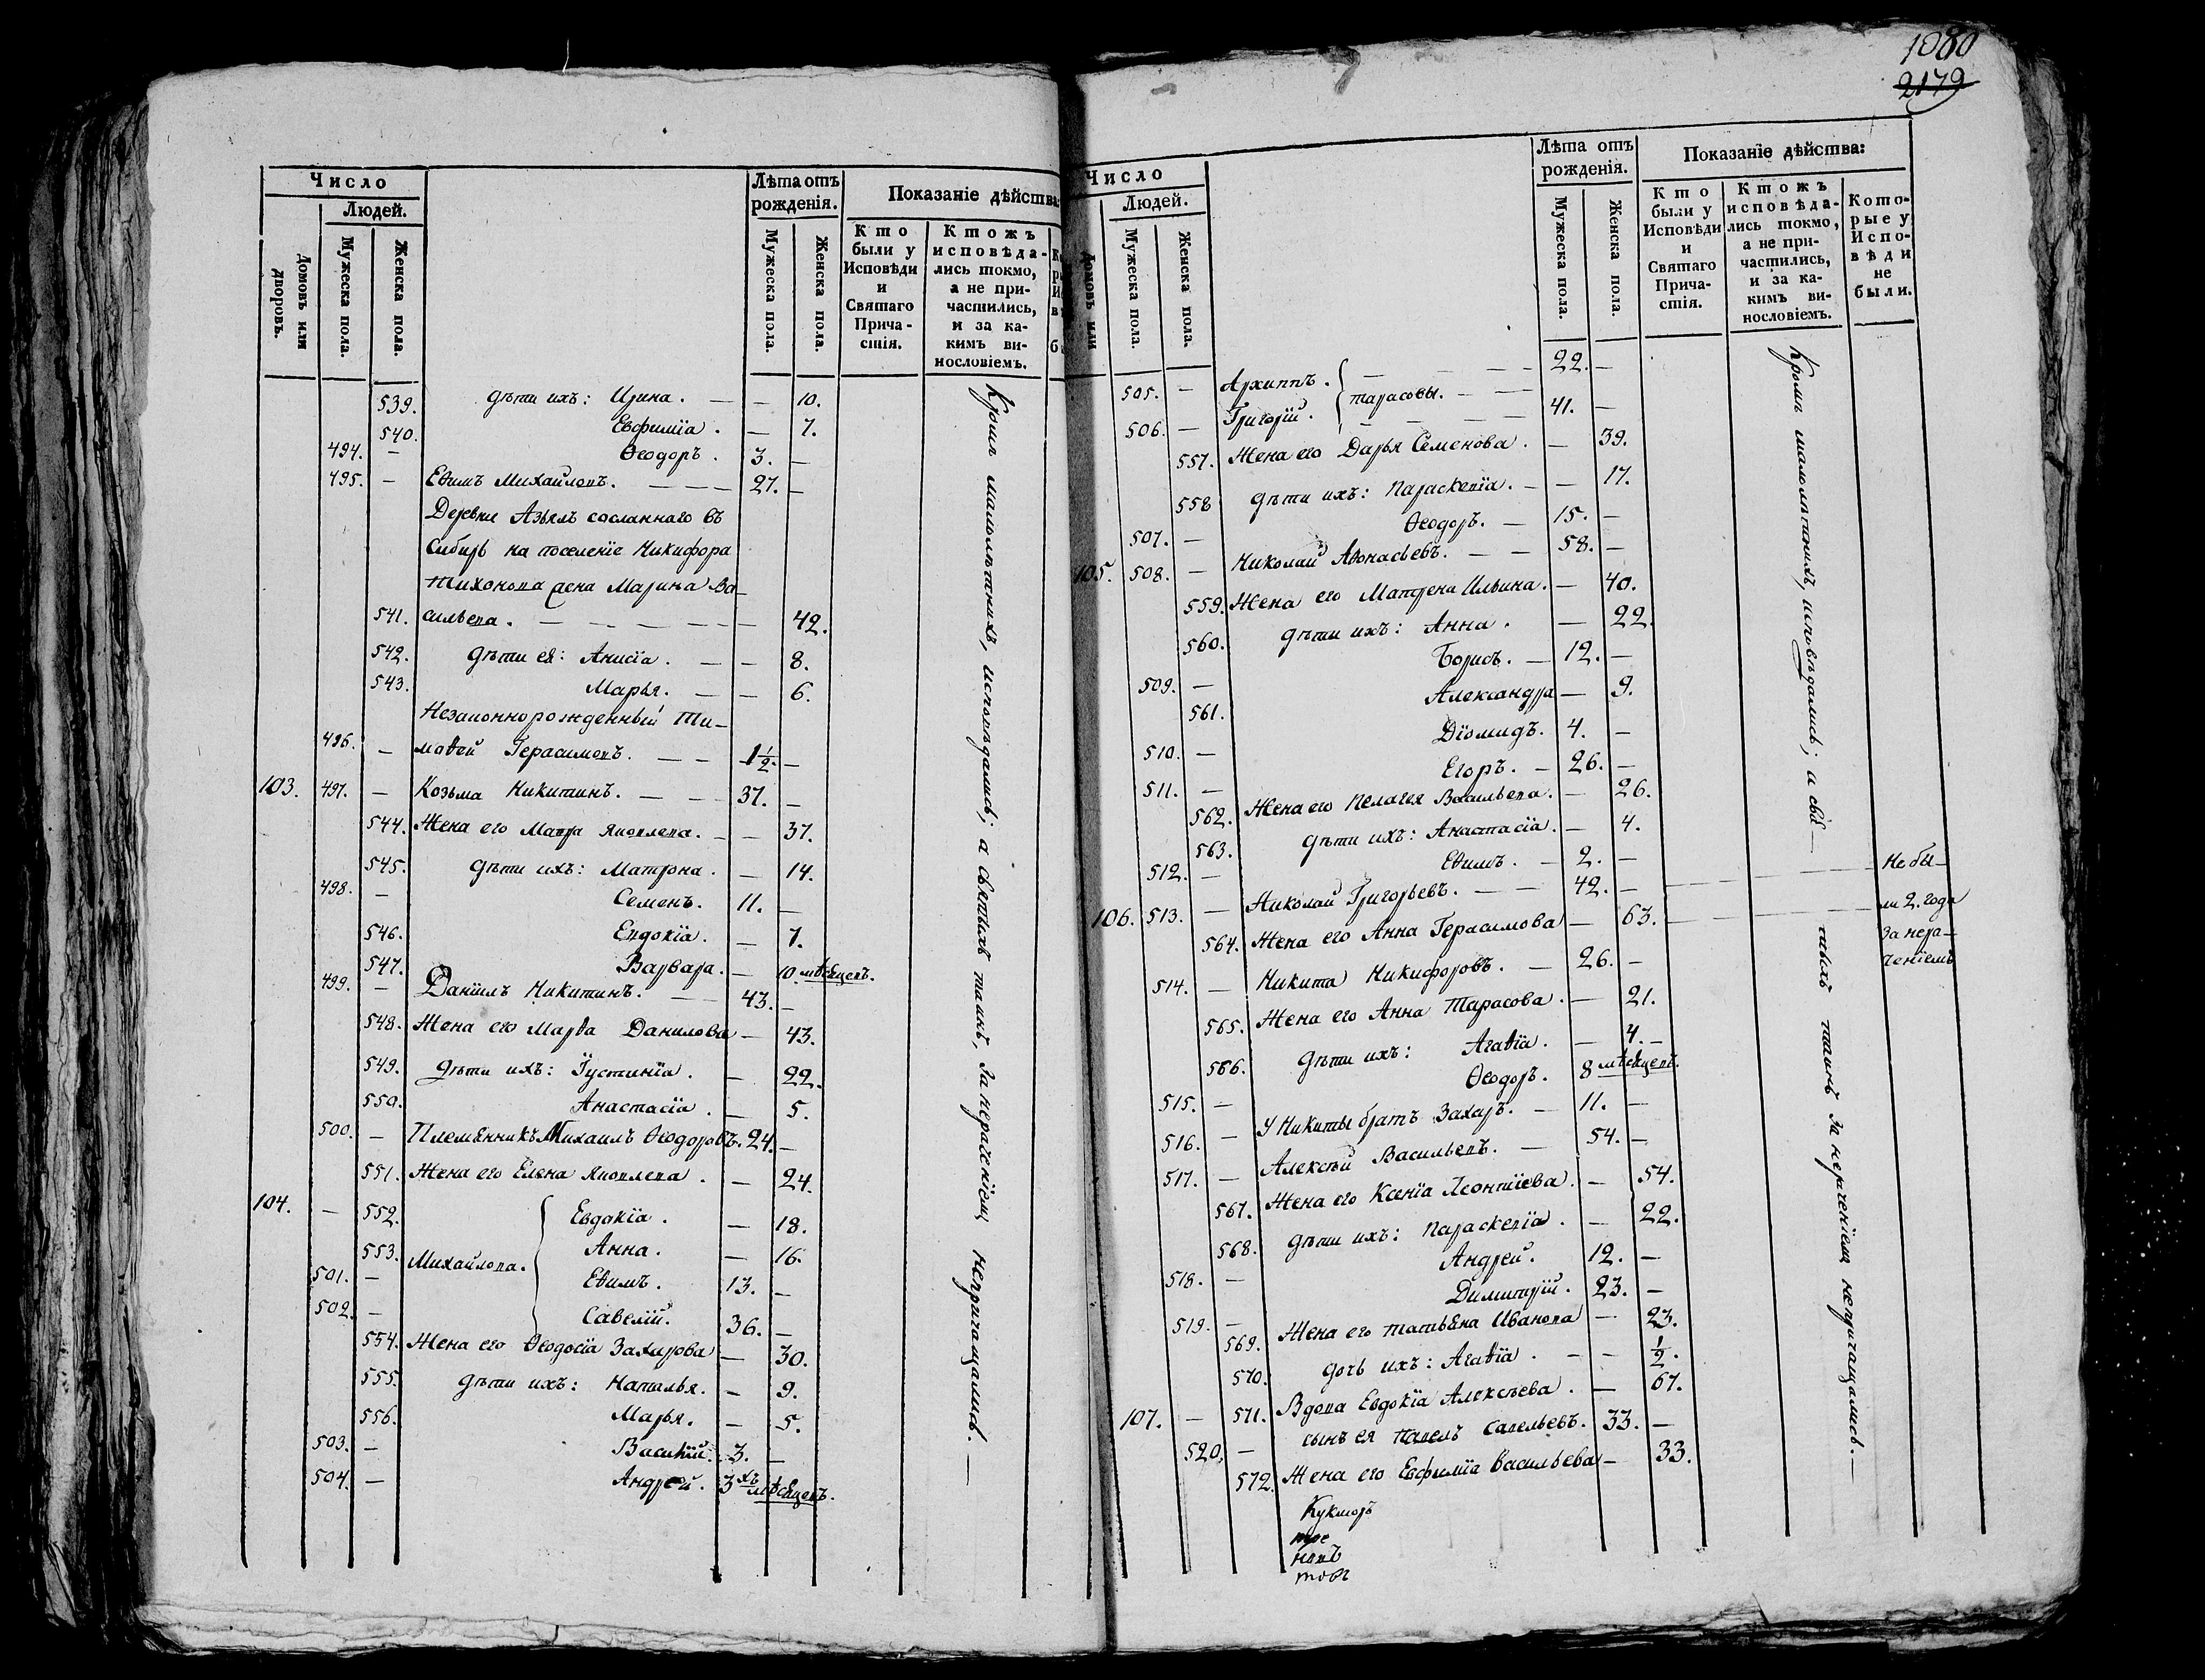 1080
2179
Число
Людей.
Домовъ или дворовъ.
Мужеска пола.
Женска пола.
Лѣта отъ рожденія.
Мужеска пола.
Женска пола.
Показаніе дѣйства:
Кто были у Исповѣди и Святаго Прича-стія.
Ктожъ исповѣда-лись токмо, а не при-частились, и за ка-кимъ ви-нословіемъ.
539. дѣти ихъ: Ирина. — — 10.
540. Евфимiа. — 7.
494. — Ѳеодоръ. 3. —
495. — Еѳимъ Михайловъ. — — — 27. —
Деревни Азьялъ сосланнаго въ
Сибирь на поселеніе Никифора
Тихонова жена Марина Ва-
541. сильева. — — — — — 42.
542. дѣти ея: Анисiа. — — 8.
543. Марья. — — 6.
Незаконнорожденный Ти-
496. — моѳей Герасимовъ. — — 1½. —
103. 497. — Козьма Никитинъ. — — — 37. —
544. Жена его Мавра Яковлева. — — 37.
545. дѣти ихъ: Матрона. — 14.
498. — Семенъ. 11. —
546. Евдокiа. — 7.
547. Варвара. — 10 мѣсяцевъ.
499. — Данiилъ Никитинъ. — — 43. —
548. Жена его Марѳа Данилова — 43.
549. дѣти ихъ: Iустинiа. — 22.
550. Анастасiа. — 5.
500. — Племянникъ Михаилъ Ѳеодоровъ. 24. —
551. Жена его Елена Яковлева. — 24.
104. — 552. Евдокiа. — 18.
553. Михайлова. Анна. — 16.
501. — Еѳимъ. 13. —
502. — Савелiй. 36. —
554. Жена его Ѳеодосiа Захарова — 30.
555. дѣти ихъ: Наталья. — 9.
556. Марья. — 5.
503. — Василiй. 3. —
504. — Андрей. 3хъ мѣсяцевъ.
Кромѣ малолѣтнихъ, исповѣдались; а святыхъ таинъ, за нераченiемъ непричащались. —
Число
Людей.
Домовъ или
Мужеска пола.
Женска пола.
Лѣта отъ рожденія.
Мужеска пола.
Женска пола.
Показаніе дѣйства:
Кто были у Исповѣди и Святаго Прича-стія.
Ктожъ исповѣда-лись токмо, а не при-частились, и за ка-кимъ ви-нословіемъ.
Кото-рые у Испо-вѣди не были.
505. — Архиппъ. — — — 22. —
Тарасовы. — —
506. — Григорiй. — — — 41. —
557. Жена его Дарья Семенова. — 39.
558 дѣти ихъ: Параскевiа. — — 17.
507. — Ѳеодоръ. — 15. —
105. 508. — Николай Аѳонасьевъ. — — 58. —
559. Жена его Матрена Ильина. — 40.
560. дѣти ихъ: Анна. — 22.
509. — Борисъ. — 12. —
561. Александра — 9.
510. — Дiомидъ. 4. —
511. — Егоръ. — 26. —
562. Жена его Пелагея Васильева. — 26.
563. дѣти ихъ: Анастасiа. — 4.
512. — Еѳимъ. — 2. —
106. 513. — Николай Григорьевъ. — — 42. — Не бы-
564. Жена его Анна Герасимова — 63. ли 2. года
за нера-
ченiемъ
514. — Никита Никифоровъ. — 26. —
565. Жена его Анна Тарасова. — 21.
566. дѣти ихъ: Агаѳiа. — 4. —
515. — Ѳеодоръ. 8 мѣсяцевъ.
516. — У Никиты братъ Захаръ. — 11. —
517. — Алексѣй Васильевъ. — 54. —
567. Жена его Ксенiа Леонтiева. — 54.
568. дѣти ихъ: Параскевiа. — 22.
518. — Андрей. 12. —
519. — Димитрiй. 23. —
569. Жена его Татьяна Иванова — 23.
570. дочь ихъ: Агаѳiа. — — ½.
107. — 571. Вдова Евдокiа Алексѣева. — 67.
520. — сынъ ея Павелъ Савельевъ. 33. —
572. Жена его Евфимiа Васильева — 33.
Кукморъ
Кромѣ малолѣтнихъ, исповѣдались; а свя—тыхъ таинъ за нераченiемъ непричащались. —